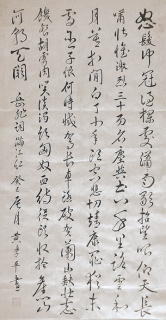 怒髮冲冠憑欄處瀟瀟雨歇抬望眼仰天長
嘯壯懷激烈三十功名塵與土八千里路雲和
月莫等閒白了少年頭空悲切靖康恥猶未
雪臣子恨何時滅駕長車踏破賀蘭山缺壯志
饑餐胡虜肉笑談渴飲匈奴血待從頭收拾舊山
河朝天闕 岳飛詞滿江紅